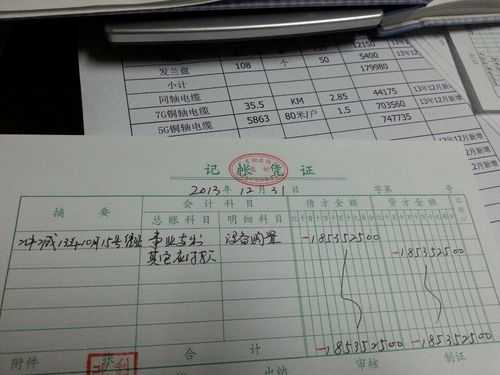 12150
发兰盘 108 个 50 5400 13年12月
小计 179980
同轴电缆 44175 13年12月新增
7G铜轴电缆 35.5 KM 2.85 703560 13年12月新增
5G铜轴电缆 5863 80米/户 1.5 747735
12月新增
12月新增
记帐凭证
2013年12月31日 字第 号
摘要 会计科目 借方金额 贷方金额
总账科目 明细科目
冲减13年10月15号 事业支出 设备购置 -185352500
其它应付款 -185352500
合计 -185352500 -185352500
附件 审核 制证